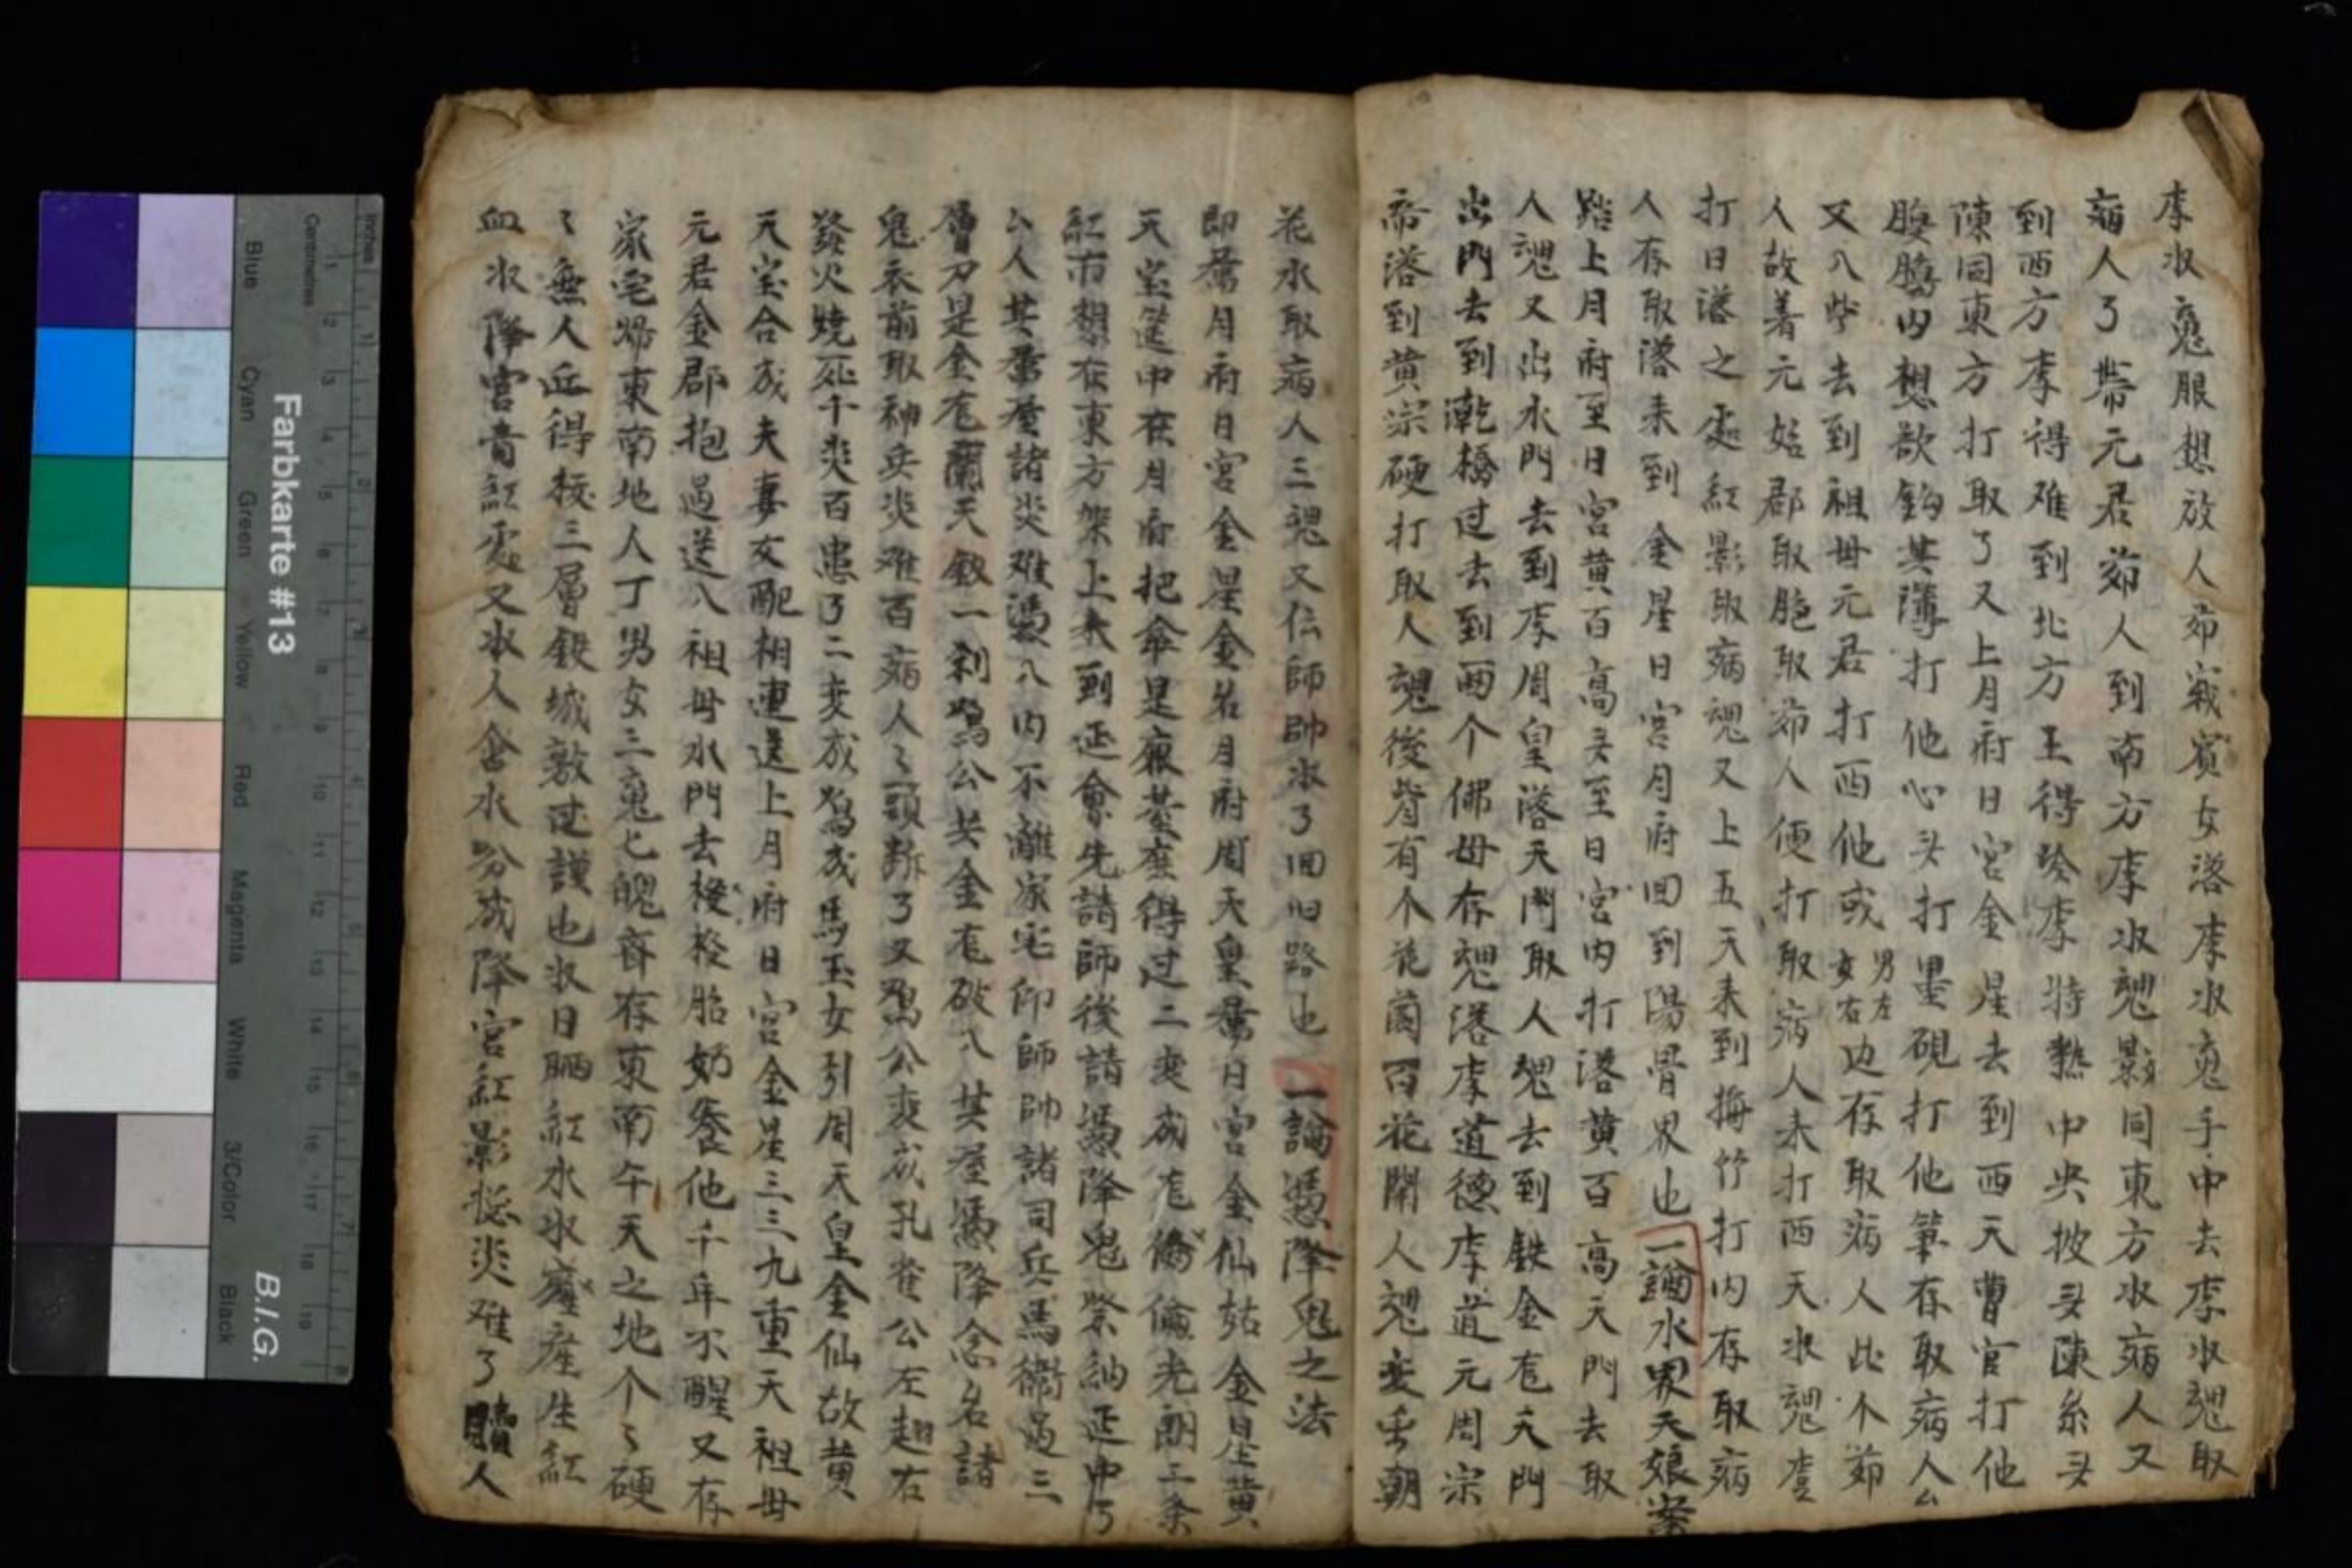 李收魂服想放人茆裁賓女落李收魂手中去李收魂取
病人了帶元君茆人到南方李收魂影同東方收病人又
到西方李得难到北方王得玲李特熱中央披头陳糸头
陳同東方打取了又上月府日宮金星去到西天曹官打他
內想欲鈎其薄打他心头打墨硯打他筆存取病人厶
又入些去到祖母元君打西他或男左女右边存取病人此个茆
人故着元始郡取胞取茆人便打取病人未打西天收魂
打日落之處紅影取病魂又上五天未到梅竹打內存取病
人存取落来到金星日宮月府回到陽骨界也一論水界天娘
路上月府至日宮黄百高头至日宮內打落黄百高天門去取
人魂又出水門去到李周皇落天門取人魂去到鉄金宅天門
出門去到乾橋过去到両个佛母存魂落李道德李道元周宗
帝落到黄宗硬打取人魂後背有个花園百花開人魂变虫朝
花水取病人三魂又伝師帥收了回旧路也一論憑降鬼之法
即騰月府日宮金星金名月府周天皇騰日宮金仙姑金星黄
天宝筵中在月府把傘是 得过二变成 光朗二条
紅布想在東方架上来到延會先請師後請憑降鬼祭納延中乃
厶人其番屋諸災难憑入内不離家宅仰師帥諸司兵馬衛過三
層刀是金宅蘭天釵一剎鴉公共金宅破入其屋憑降念名諸
鬼衣前取神兵災难百病人〻頭断了又鴉公变成孔雀公左趙右
發火燒死千災百患了二变成鴉成馬玉女引周天皇金仙故黄
天宝合成夫妻友配相連送上月府日宮金星三三九重天祖母
元君金郡抱過送入祖母水門去梭栓胎奶養他千年不醒又存
家宅婦東南地人丁男女三魂七魄齐存東南午天之地个〻硬
〻無人近得核三層鉄城敖过護也收日晒紅水收 産生紅
血收降宮音紅处又收人舍水分成降宮紅影 災难了贖人
Farbkarte #13
B.I.G.
Centimetres
Inches
Blue
Cyan
Green
Yellow
Red
Magenta
White
3/Color
Black